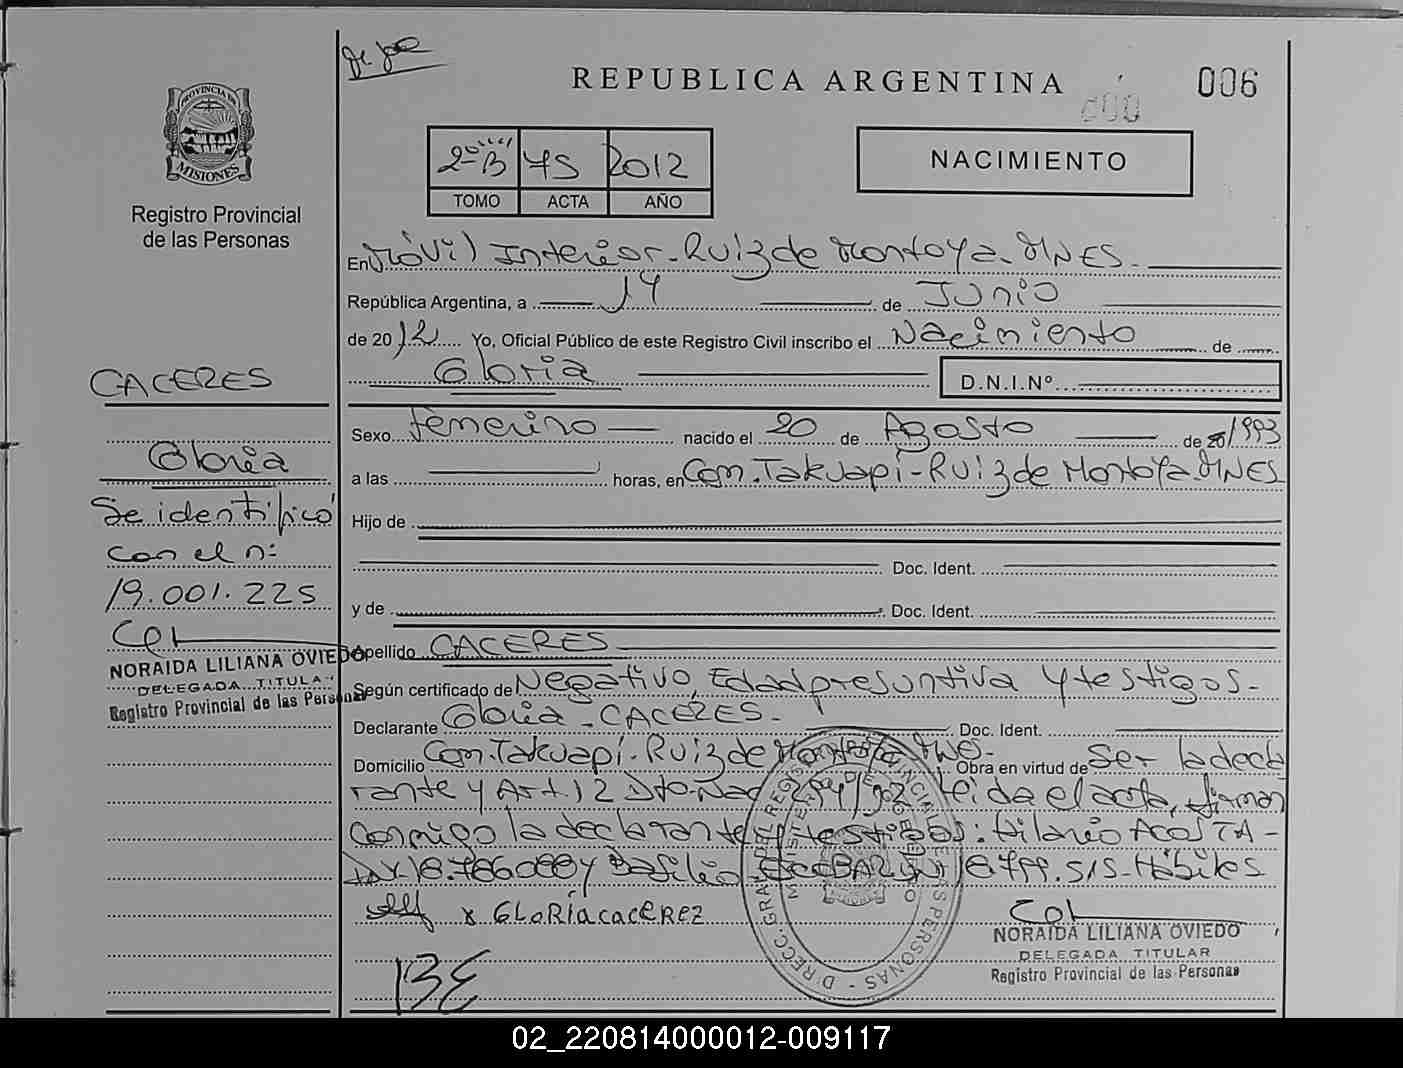 REPUBLICA ARGENTINA
006
000
PROVINCIA DE
MISIONES
Registro Provincial
de las Personas
2º B 75 2012
TOMO ACTA AÑO
NACIMIENTO
En Móvil Interior - Ruiz de Montoya - MNES -
República Argentina, a 14 de Junio
de 2012 Yo, Oficial Público de este Registro Civil inscribo el Nacimiento de
Gloria D.N.I.Nº
Sexo femenino nacido el 20 de Agosto de 20 1993
a las horas, en Com. Takuapí - Ruiz de Montoya - MNES
Hijo de
Doc. Ident.
y de Doc. Ident.
Apellido CACERES
Según certificado de Negativo, Edad presuntiva y testigos -
Declarante Gloria - CACERES - Doc. Ident.
Domicilio Com. Takuapí - Ruiz de Montoya Obra en virtud de Ser la decla
rante y Art. 12 Dto. Nac Leida el acta, firman
conmigo la declarante y testigos: Hilario ACOSTA -
y Basilio ESCOBAR Hábiles
x GLORíA cacereZ
NORAIDA LILIANA OVIEDO
DELEGADA TITULAR
Registro Provincial de las Personas
CACERES
Gloria
Se identificó
con el nº
19.001.225
NORAIDA LILIANA OVIEDO
DELEGADA TITULAR
Registro Provincial de las Personas
BE
02_220814000012-009117